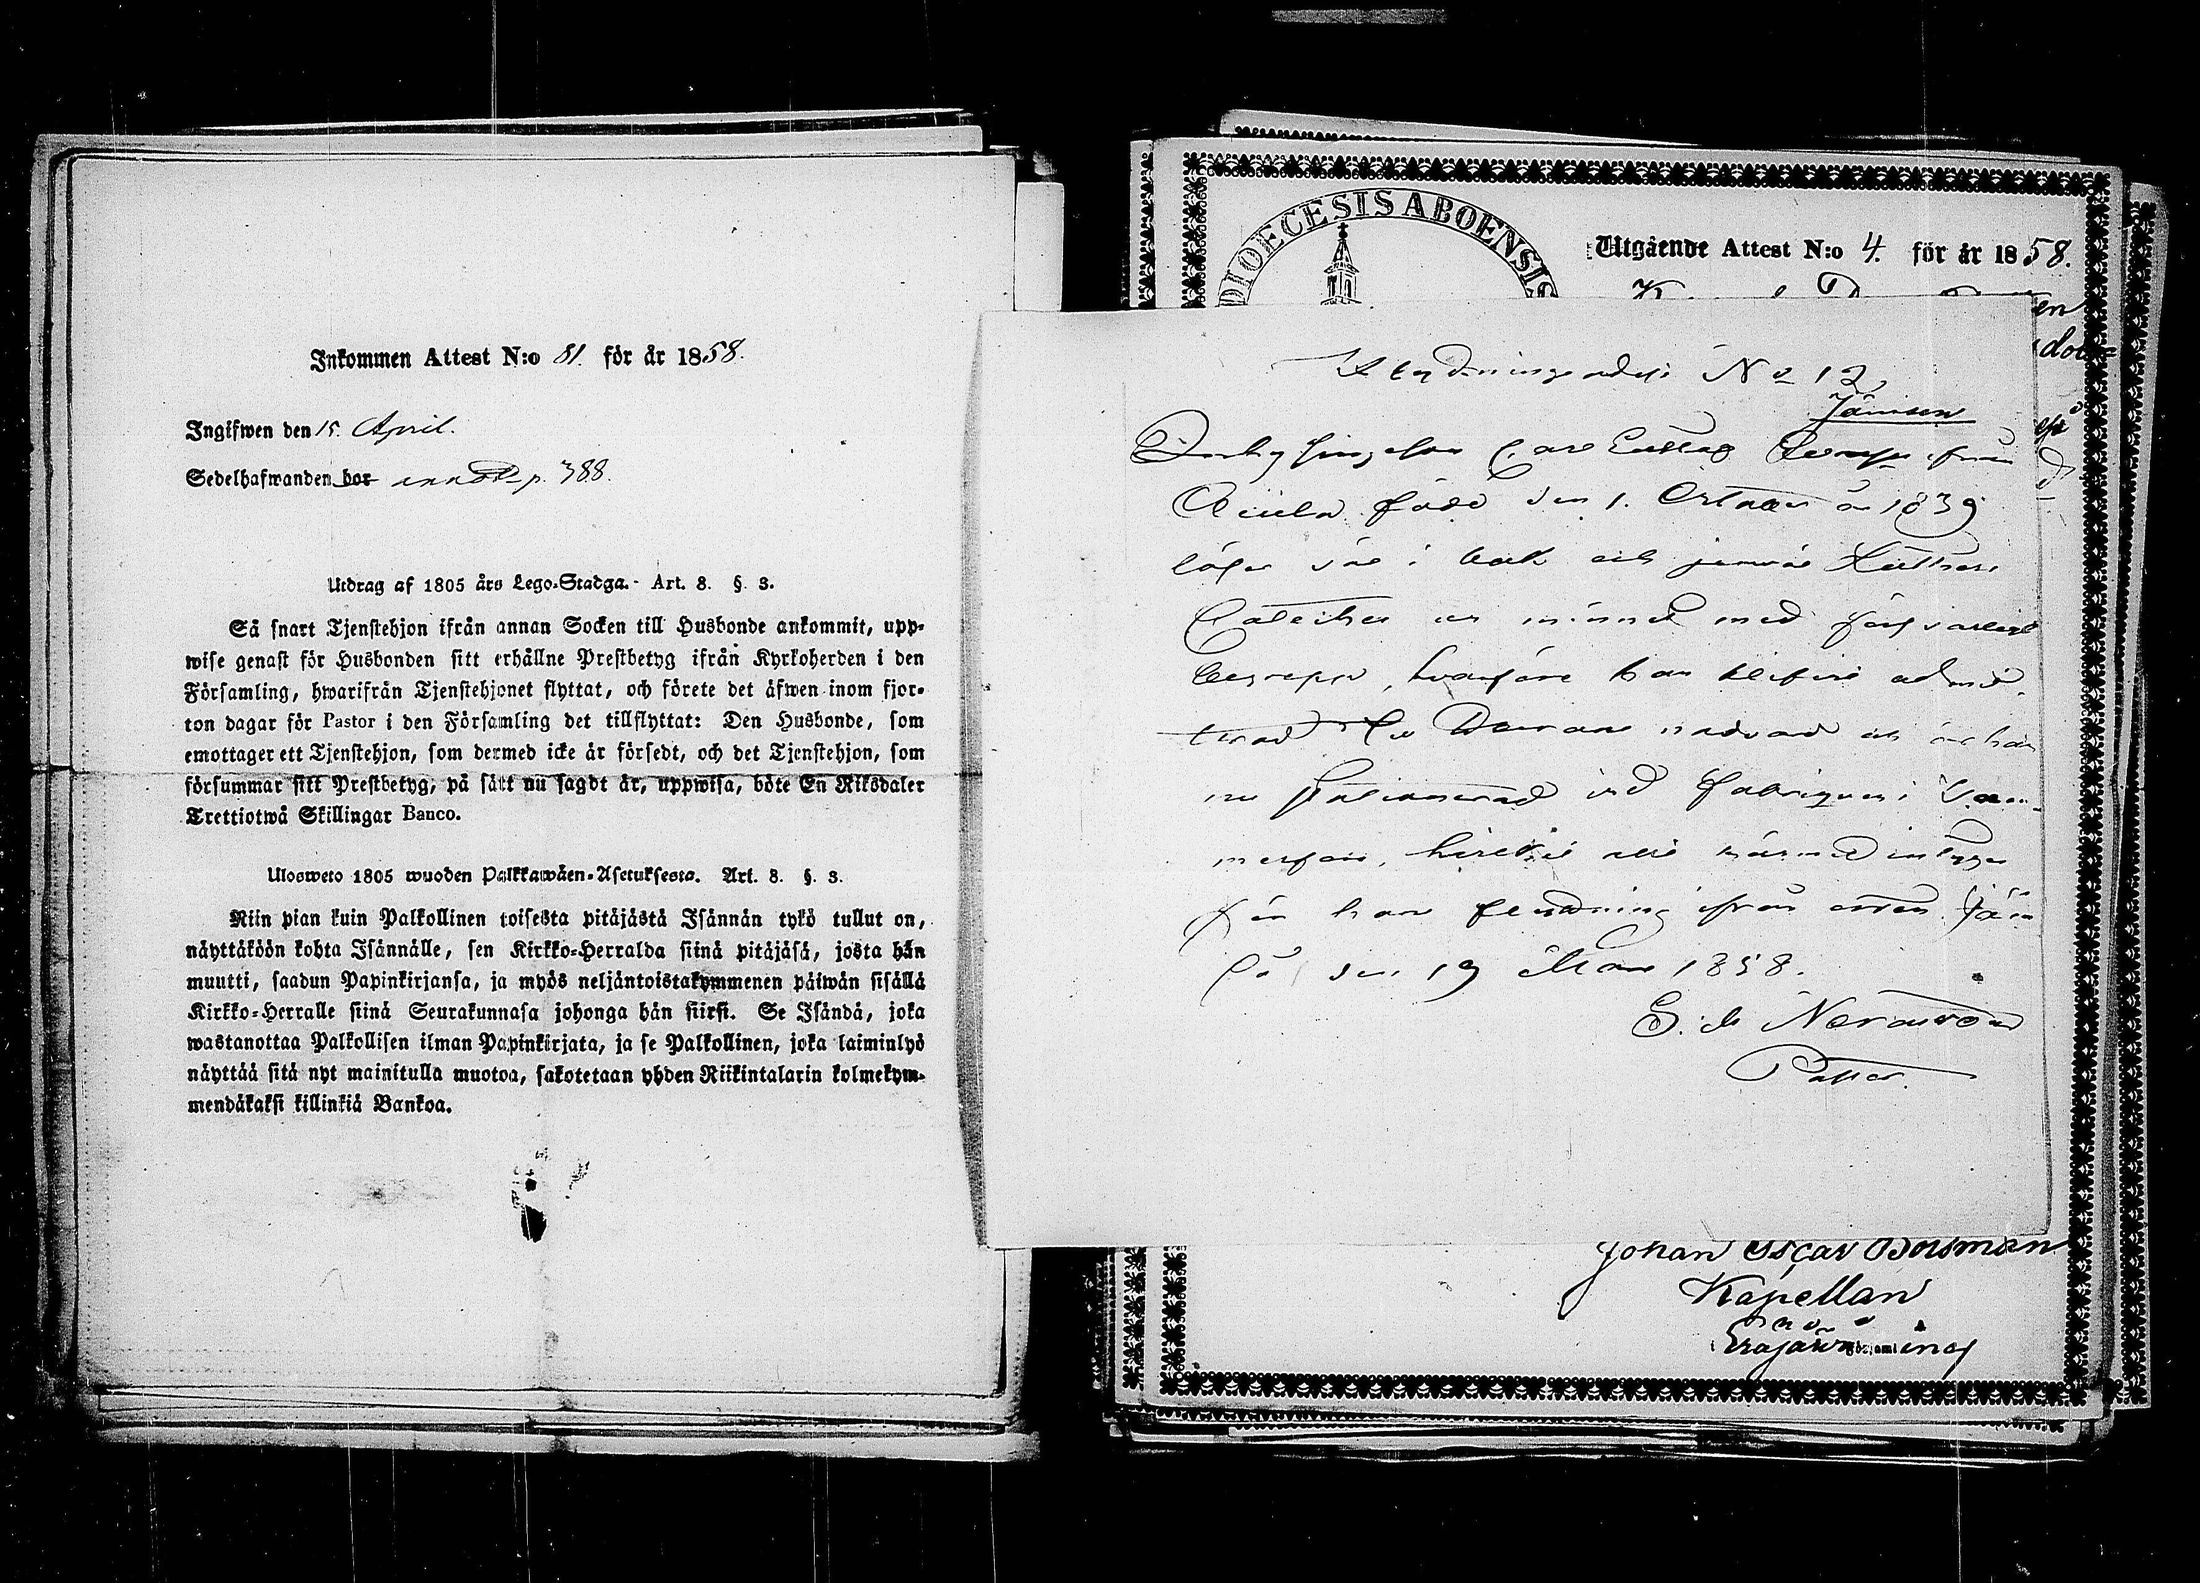 Inkommen Attest N:o 81. för år 1858.
Ingifwen den 15. April.
Sedelhafwanden bor annot. p. 388.
Utdrag af 1805 års Lego-Stadga. Art. 8. §. 3.
Så snart Tjenstehjon ifrån annan Socken till Husbonde ankommit, upp-
wise genast för Husbonden sitt erhållne Prestbetyg ifrån Kyrkoherden i den
Församling, hwarifrån Tjenstehjonet flyttat, och förete det äfwen inom fjor-
ton dagar för Pastor i den Församling det tillflyttat: Den Husbonde, som
emottager ett Tjenstehjon, som dermed icke är försedt, och det Tjenstehjon, som
försummar sitt Prestbetyg, på sätt nu sagdt är, uppwisa, böte En Riksdaler
Trettiotwå Skillingar Banco.
Ulosweto 1805 wuoden Palkkawäen-Asetuksesta. Art. 8. §. 3.
Niin pian kuin Palkollinen toisesta pitäjästä Isännän tykö tullut on,
näyttäköön kohta Isännälle, sen Kirkko-Herralda siinä pitäjäsä, josta hän
muutti, saadun Papinkirjansa, ja myös neljäntoistakymmenen päiwän sisällä
Kirkko-Herralle siinä Seurakunnasa johonga hän siirsi. Se Isändä, joka
wastanottaa Palkollisen ilman Papinkirjata, ja se Palkollinen, joka laiminlyö
näyttää sitä nyt mainitulla muotoa, sakotetaan yhden Riikintalarin kolmekym-
mendäkaksi killinkiä Bankoa.
DIOECESIS ABOENSIS
Utgående Attest N:o 4. för år 1858.
en
dom
No 12
Jämsen
Carl Gustaf från
född den 1. October år 1839
läser i bok och
Cateches ur minnet med försvarligt
begrepp, hvarföre han blifvit admit-
terad till nattvard och är han
nu vid fabriquen i
mersfors, hvilket allt härmed intygas
för hans flyttning ifrån orten. Jäm
sä den 19 Mars 1858.
Pastor.
Johan Oscar Bonsman
Kapellan
Eräjärvi församling